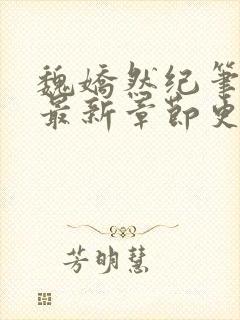 魏嬌然纪笔
最新章節史
芳明慧